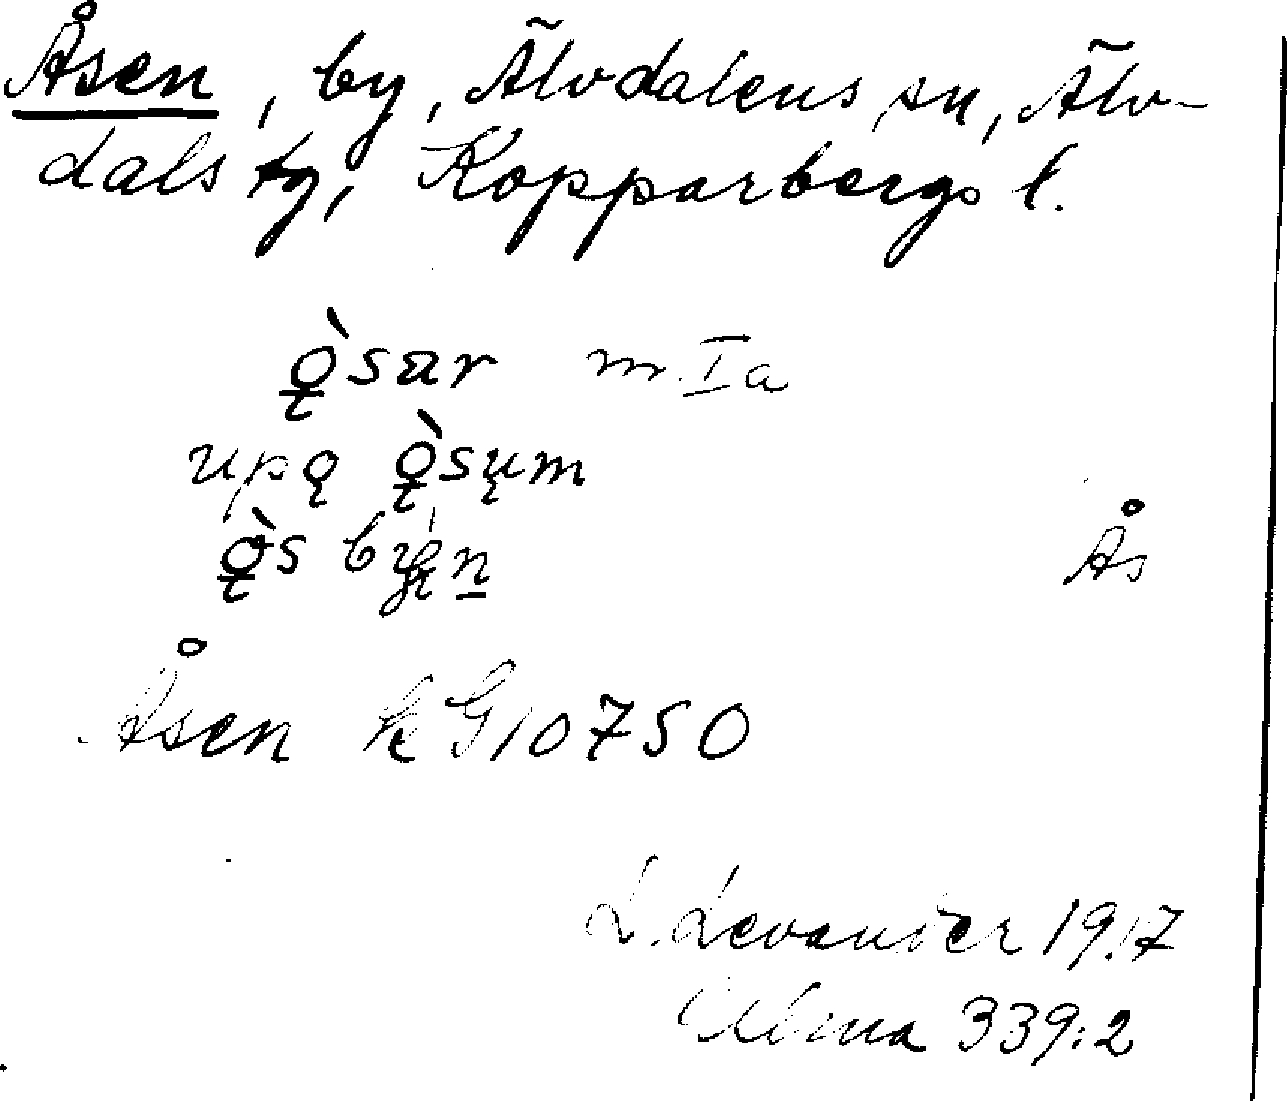 Åsen, by, Älvdalens sn, Älv-
dals tg, Kopparbergs l.
ǫ̀sar m. Ia
upǫ ǫ̀sųm
ǫ̀s byę́n Ås
Åsen kG10750
L. Levander 1917
Ulma 339:2